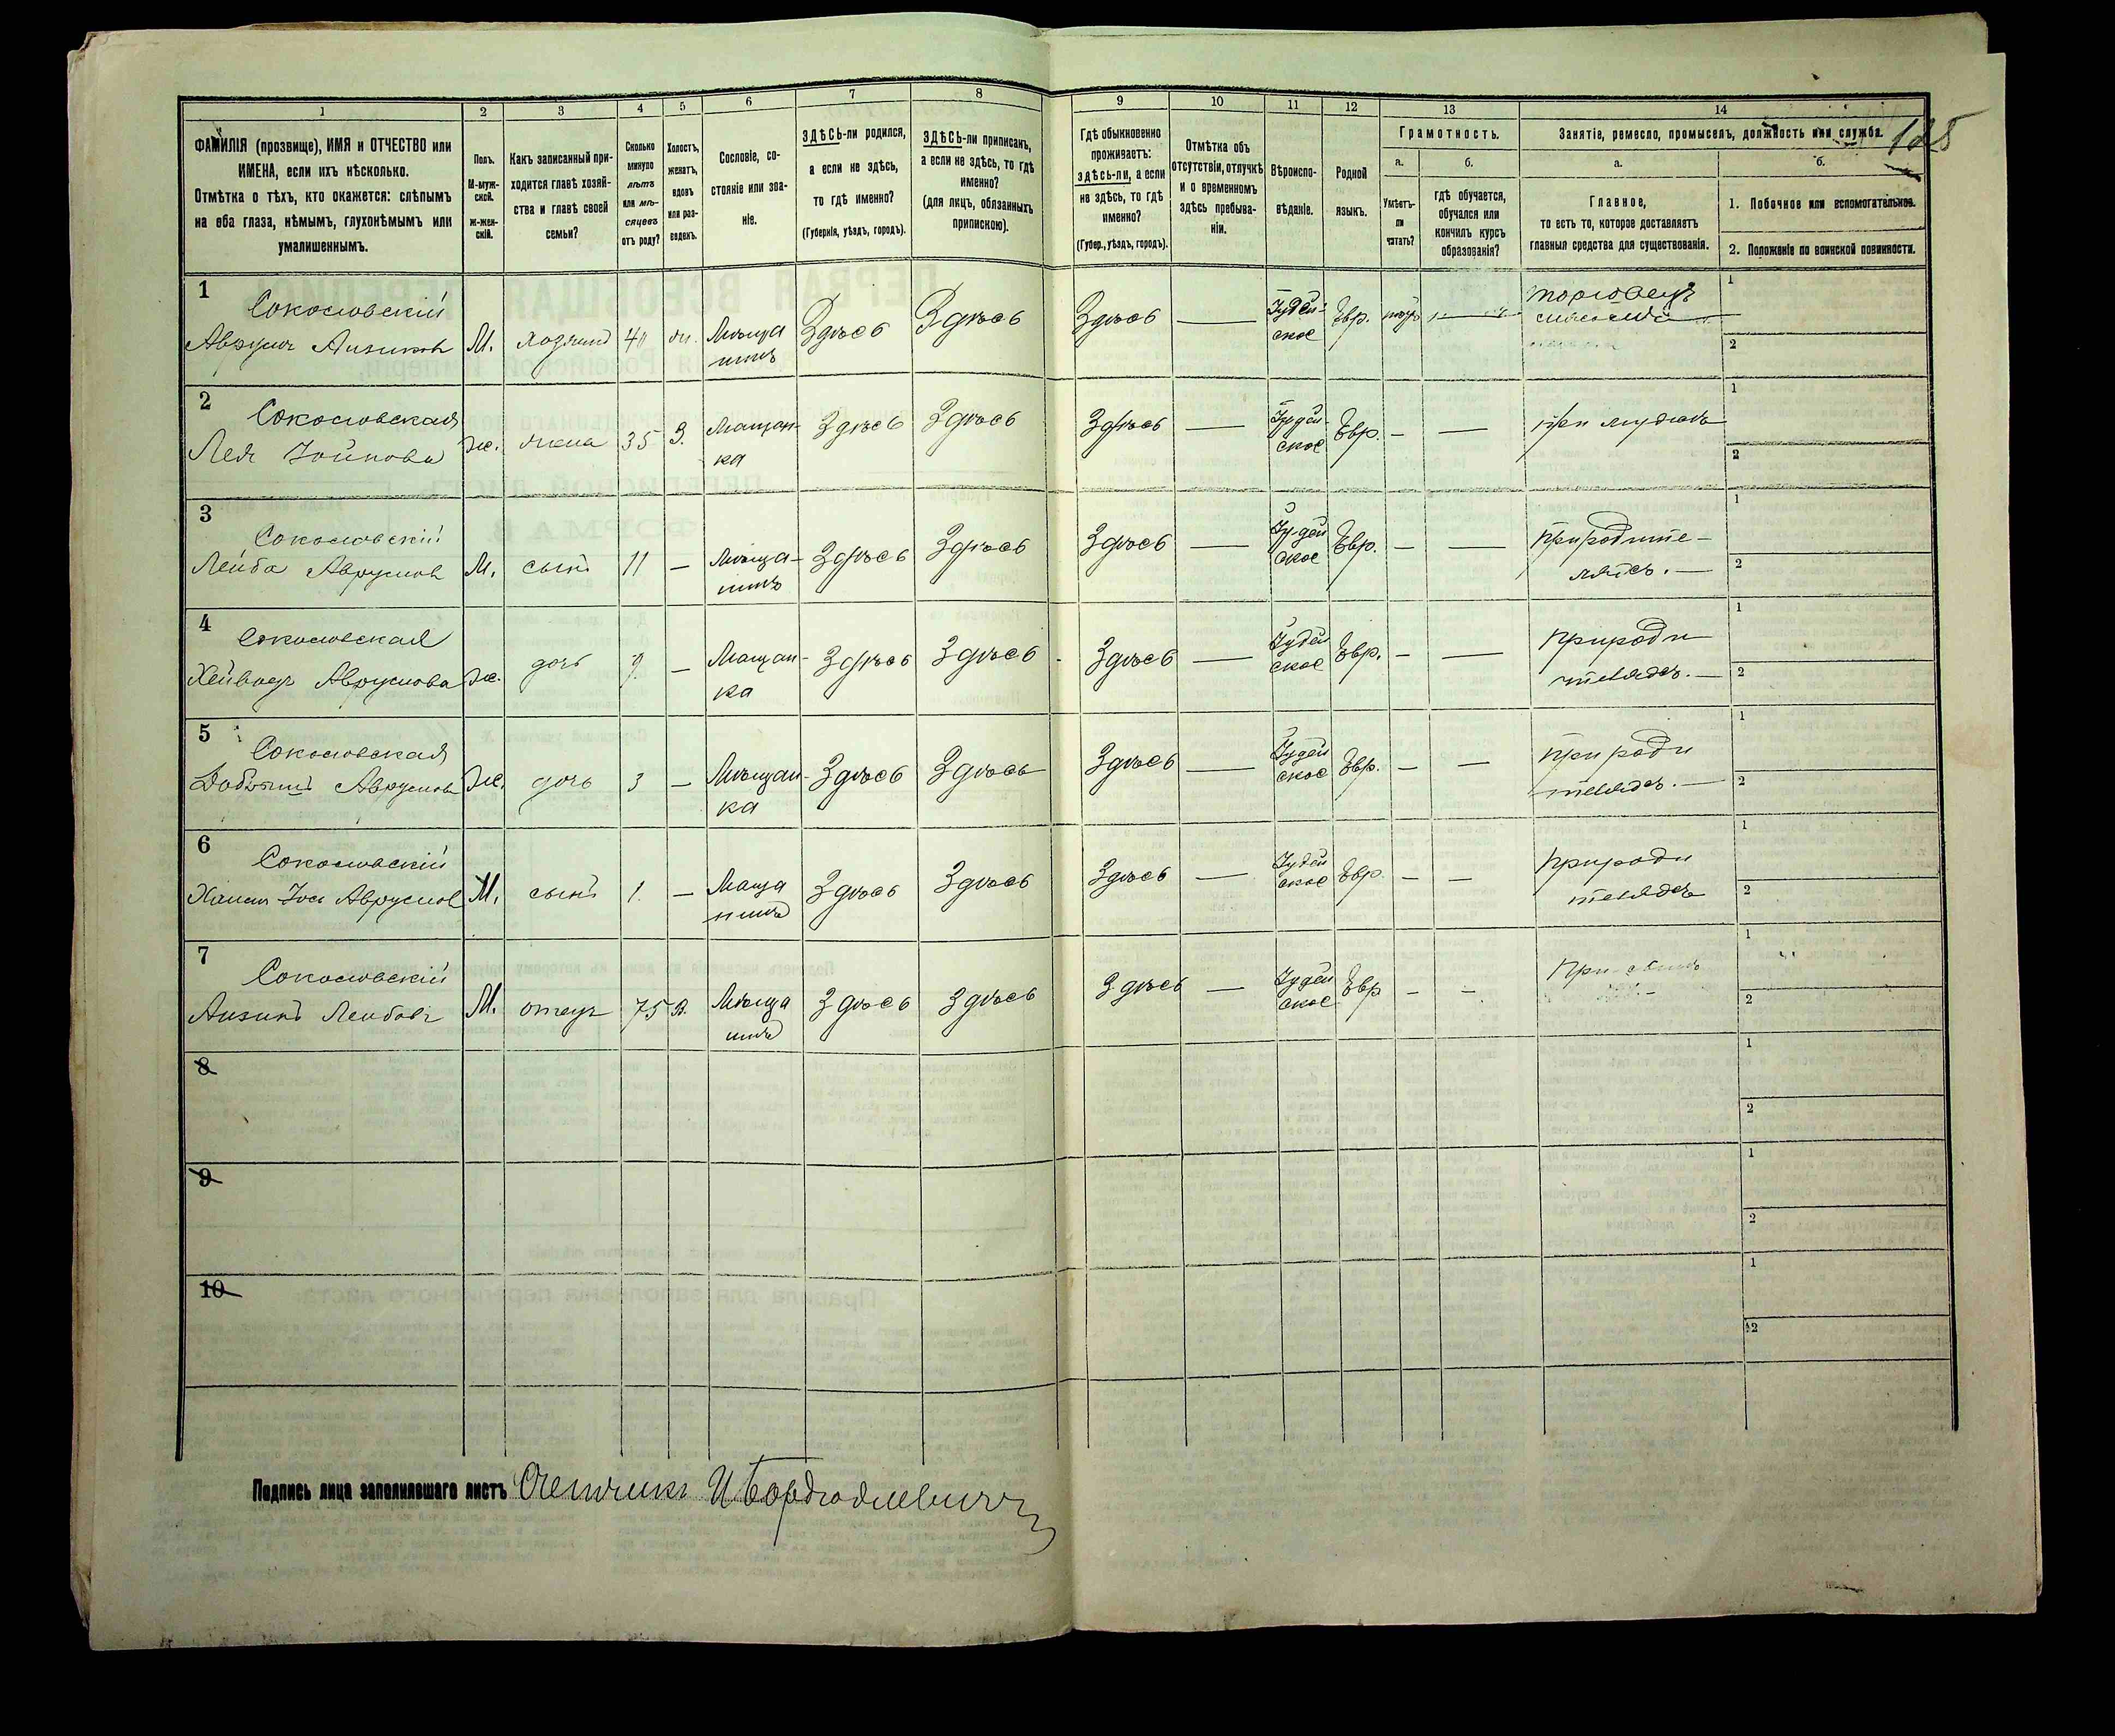 1 2 3 4 5 6 7 8 9 10 11 12 13 14
125
ФАМИЛІЯ (прозвище), ИМЯ и ОТЧЕСТВО или
ИМЕНА, если ихъ нѣсколько.
Отмѣтка о тѣхъ, кто окажется: слѣпымъ
на оба глаза, нѣмымъ, глухонѣмымъ или
умалишеннымъ.
Полъ.
М-муж-
ской.
Ж-жен-
скій.
Какъ записанный при-
ходится главѣ хозяй-
ства и главѣ своей
семьи?
Сколько
минуло
лѣтъ
или мѣ-
сяцевъ
отъ роду?
Холостъ,
женатъ,
вдовъ
или раз-
веденъ.
Сословіе, со-
стояніе или зва-
ніе.
ЗДѢСЬ-ли родился,
а если не здѣсь,
то гдѣ именно?
(Губернія, уѣздъ, городъ).
ЗДѢСЬ-ли приписанъ,
а если не здѣсь, то гдѣ
именно?
(для лицъ, обязанныхъ
припискою).
Гдѣ обыкновенно
проживаетъ:
здѣсь-ли, а если
не здѣсь, то гдѣ
именно?
(Губер., уѣздъ, городъ).
Отмѣтка объ
отсутствіи, отлучкѣ
и о временномъ
здѣсь пребыва-
ніи.
Вѣроиспо-
вѣданіе.
Родной
языкъ.
Грамотность.
а. б.
Умѣетъ-
ли
читать?
гдѣ обучается,
обучался или
кончилъ курсъ
образованія?
Занятіе, ремесло, промыселъ, должность или служба.
а. б.
Главное,
то есть то, которое доставляетъ
главныя средства для существованія.
1. Побочное или вспомогательное.
2. Положеніе по воинской повинности.
1
Сокословскій
Аврумъ М. хозяинъ 40 Мѣща
нинъ
Здѣсь Здѣсь Здѣсь — Іудей-
ское
Евр.
торговецъ
1
2
2
Сокословская
Лея ж. жена 35 З. Мѣщан-
ка
Здѣсь Здѣсь Здѣсь — Іудей-
ское
Евр. — — при мужѣ
1
2
3
Сокословскій
Лейба Аврумов М. сынъ 11 — Мѣща-
нинъ
Здѣсь Здѣсь Здѣсь — Іудей
ское
Евр. — — при родите-
ляхъ. —
1
2
4
Сокословская
Аврумова ж. дочь 9. — Мѣщан-
ка
Здѣсь Здѣсь Здѣсь — Іудей
ское
Евр. — — при роди
теляхъ. —
1
2
5
Сокословская
Аврумова ж. дочь 3 — Мѣщан-
ка
Здѣсь Здѣсь Здѣсь — Іудей
ское
Евр. — — при роди
теляхъ. —
1
2
6
Сокословскій
Аврумов М. сынъ 1. — Мѣща
нинъ
Здѣсь Здѣсь Здѣсь — Іудей
ское
Евр. — — при роди
теляхъ
1
2
7
Сокословскій
Айзикъ Лейбовъ М. отецъ 75 В. Мѣща
нинъ
Здѣсь Здѣсь Здѣсь — Іудей
ское
Евр — — При сынѣ
1
2
8
1
2
9
1
2
10
1
2
Подпись лица заполнившаго листъ Счетчикъ